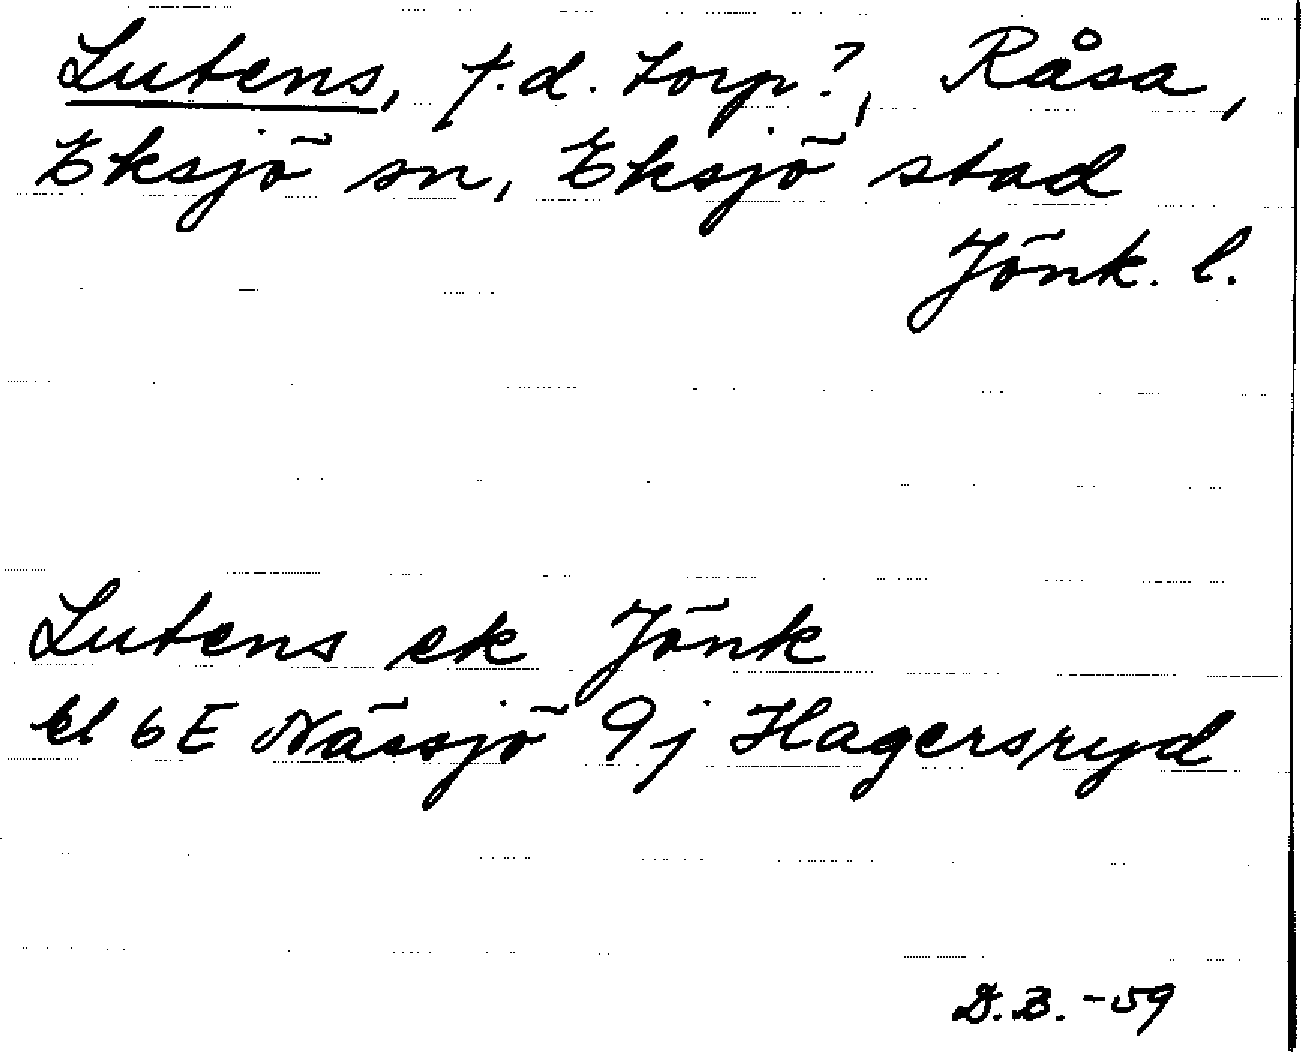 Lutens, f.d. torp?, Råsa,
Eksjö sn, Eksjö stad
Jönk. l.
Lutens ek Jönk
bl 6E Nässjö 9j Hagersryd
D.B. -59